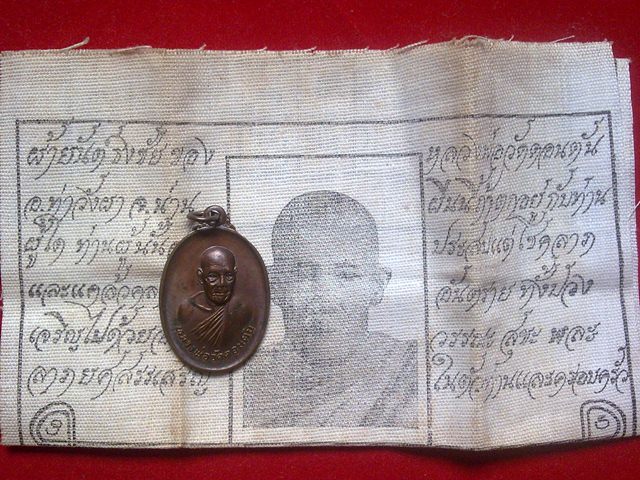 ผ้ายันต์ ธงชัย ของ หลวงพ่อวัดดอนตัน
อ.ท่าวังผา จ.น่าน ผืนนี้ถ้าตกอยู่กับท่าน
ผู้ใด ท่านผู้นั้น ประสบแต่โชคลาภ
และแคล้วคลา อันตราย ทั้งปวง
เจริญไปด้วย วรรณะ สุขะ พละ
ลาภยศสรรเสริญ ในตัวท่านและครอบครัว
หลวงพ่อวัดดอนตัน